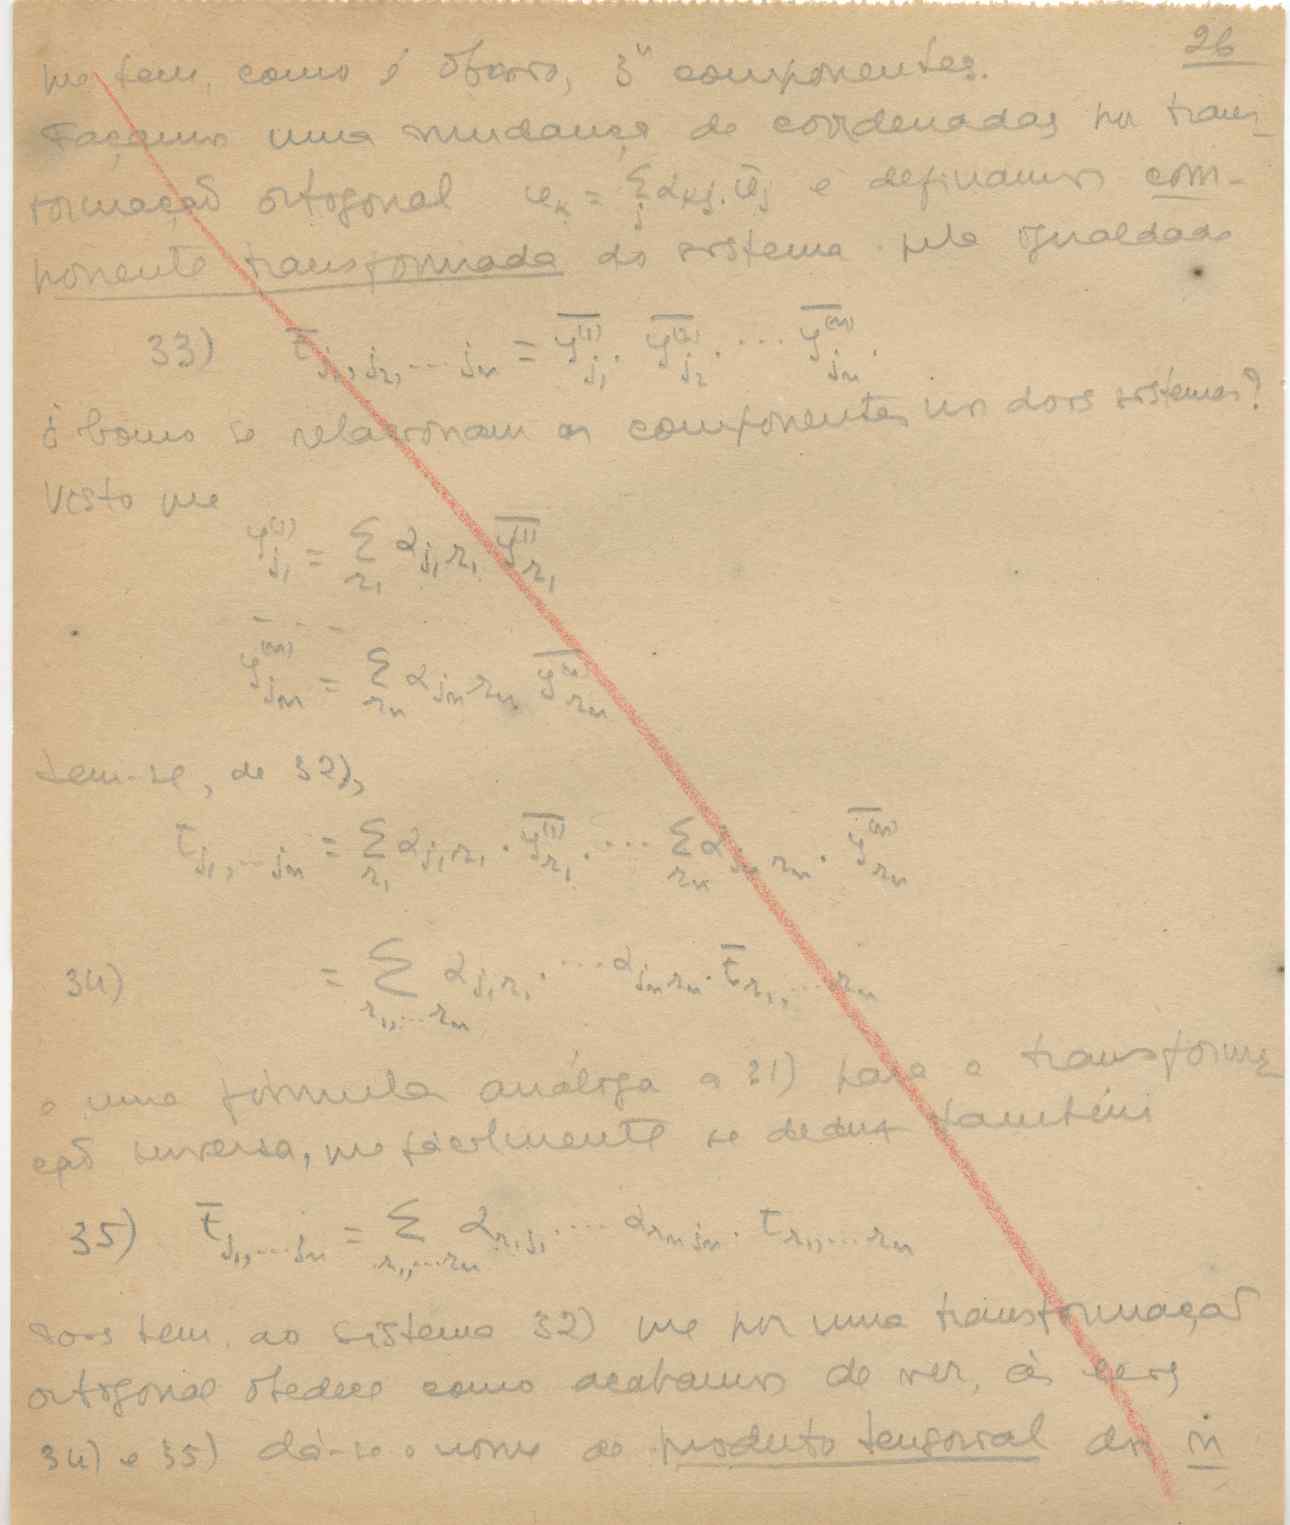 26
que tem, como é óbvio, 3ⁿ componentes.
Façamos uma mudança de coordenadas por trans-
formação ortogonal e_k = Σ_j α_kj . ē_j e definamos com-
ponente transformada do sistema pela igualdade
33) t̄_{j₁,j₂,...jₙ} = ȳ^{(1)}_{j₁} . ȳ^{(2)}_{j₂} . ... ȳ^{(n)}_{jₙ} .
Como se relacionam as componentes nos dois sistemas?
Visto que
y^{(1)}_{j₁} = Σ_{r₁} α_{j₁r₁} ȳ^{(1)}_{r₁}
- - - -
y^{(n)}_{jₙ} = Σ_{rₙ} α_{jₙrₙ} ȳ^{(n)}_{rₙ}
tem-se, de 32),
t_{j₁,...jₙ} = Σ_{r₁} α_{j₁r₁} . ȳ^{(1)}_{r₁} . ... Σ_{rₙ} α_{jₙrₙ} . ȳ^{(n)}_{rₙ}
34) = Σ_{r₁,...rₙ} α_{j₁r₁} . ... α_{jₙrₙ} . t̄_{r₁,...rₙ}
e uma fórmula análoga a 31) para a transforma-
ção inversa, que facilmente se deduz também
35) t̄_{j₁,...jₙ} = Σ_{r₁,...rₙ} α_{r₁j₁} . ... α_{rₙjₙ} . t_{r₁,...rₙ}
Pois bem, ao sistema 32) que por uma transformação
ortogonal obedece como acabamos de ver, às leis
34) e 35) dá-se o nome de produto tensorial dos n